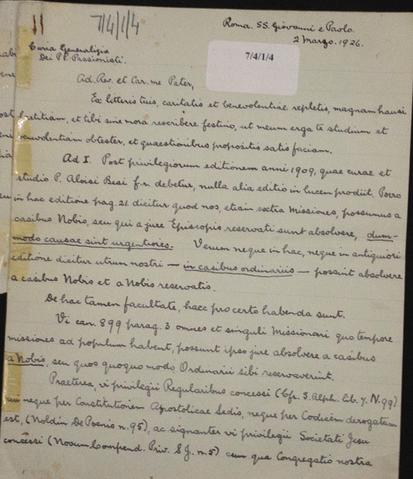 11
7/4/1/4
Roma. SS. Giovanni e Paolo.
2 Marzo, 1926.
Curia Generalizia
Dei PP. Passionisti.
7/4/1/4
Ad. Rev. et Car. me Pater,
Ex litteris tuis, caritatis et benevolentiae repletis, magnam hausi
laetitiam, et tibi sine mora rescribere festino, ut meum erga te studium et
benevolentiam obtester, et quaestionibus propositis satis faciam.
Ad I. Post privilegiorum editionem anni 1909, quae curae et
studio P. Aloisi Besi f.m. debetur, nulla alia editio in lucem prodiit. Porro
in hac editione pag. 21 dicitur quod nos, etiam extra Missiones, possumus a
casibus Nobis, seu qui a jure Episcopis reservati sunt absolvere, dum-
modo causae sint urgentiores. Verum neque in hac, neque in antiquiori
editione dicitur utrum nostri — in casibus ordinariis — possint absolvere
a casibus Nobis et a Nobis reservatis.
De hac tamen facultate, haec pro certo habenda sunt.
Vi can. 899 parag. 3 omnes et singuli Missionarii quo tempore
missiones ad populum habent, possunt ipso jure absolvere a casibus
a Nobis, seu quos quoquo modo Ordinarii sibi reservaverint.
Praeterea, vi privilegii Regularibus concessi (Cfr. S. Alph. Lib. 7. N. 99)
neque per Constitutionem Apostolicae Sedis, neque per Codicem derogatum
est, (Noldin De Poenis n. 95), ac signanter vi privilegii Societati Jesu
concessi (Novum Compend. Priv. S.J. n. 5) cum qua Congregatio nostra